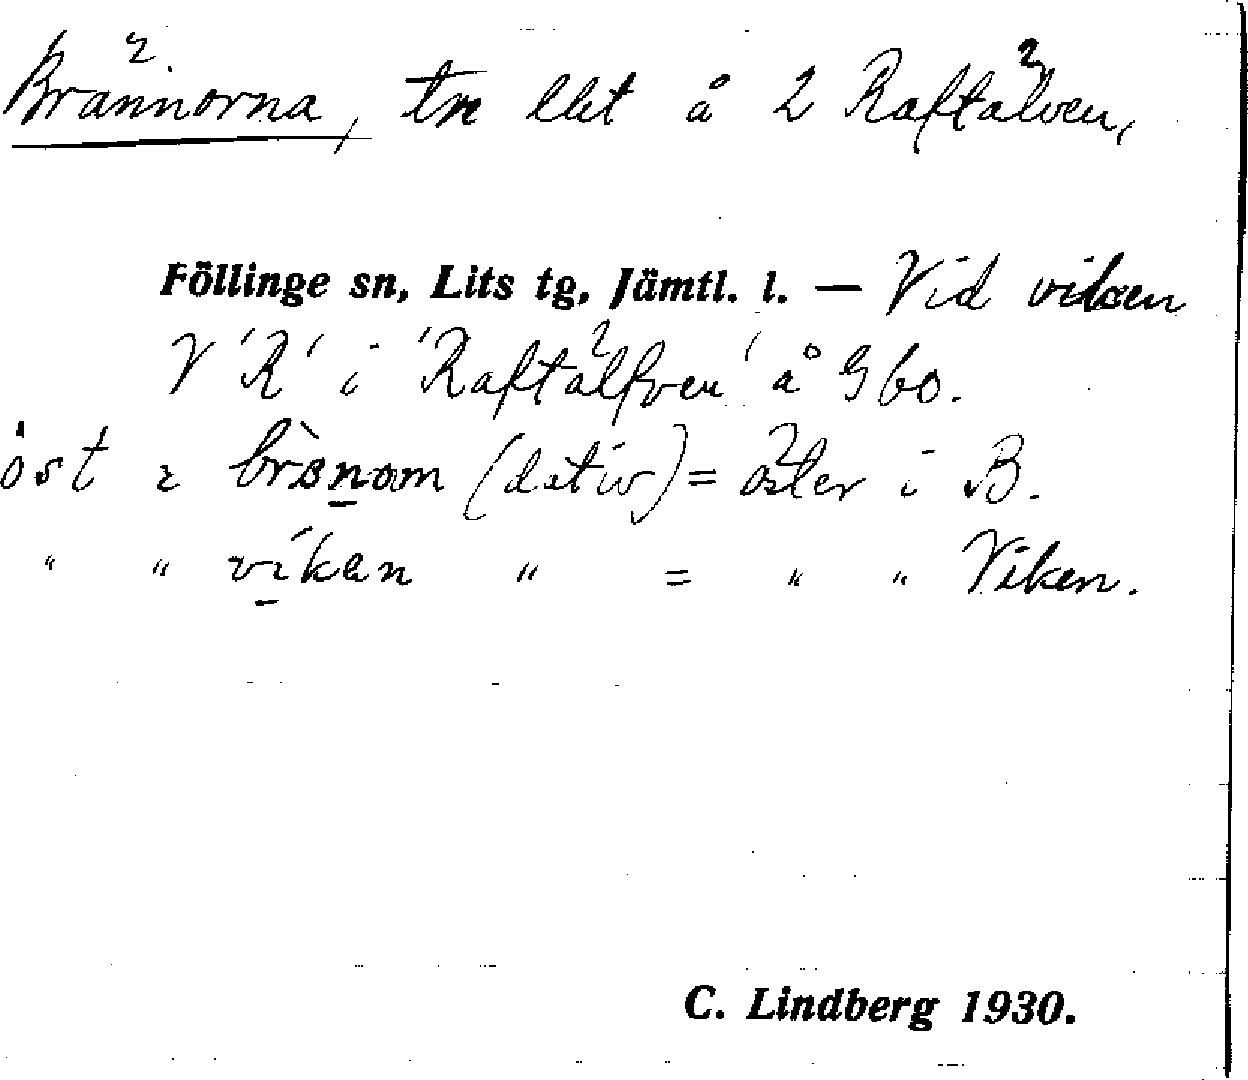 Brännorna, tre lht å 2 Raftälven,
Föllinge sn, Lits tg, Jämtl. l. — Vid viken
V 'R' i 'Raftälfven' å Gbo.
öst ɪ brànom (dativ) = öster i B.
" " víkan " = " " Viken.
C. Lindberg 1930.